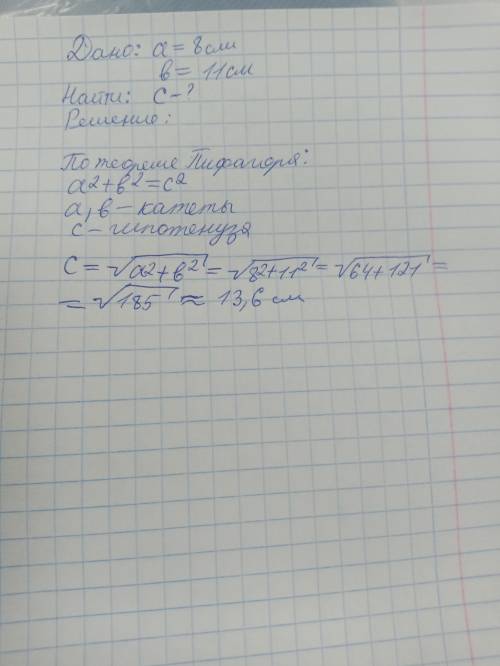 Дано: a = 8см
в = 11см
Найти: c - ?
Решение:
По теореме Пифагора:
a²+в²=c²
a, в - катеты
c - гипотенуза
C = √a²+в² = √8²+11² = √64+121 =
= √185 ≈ 13,6 см